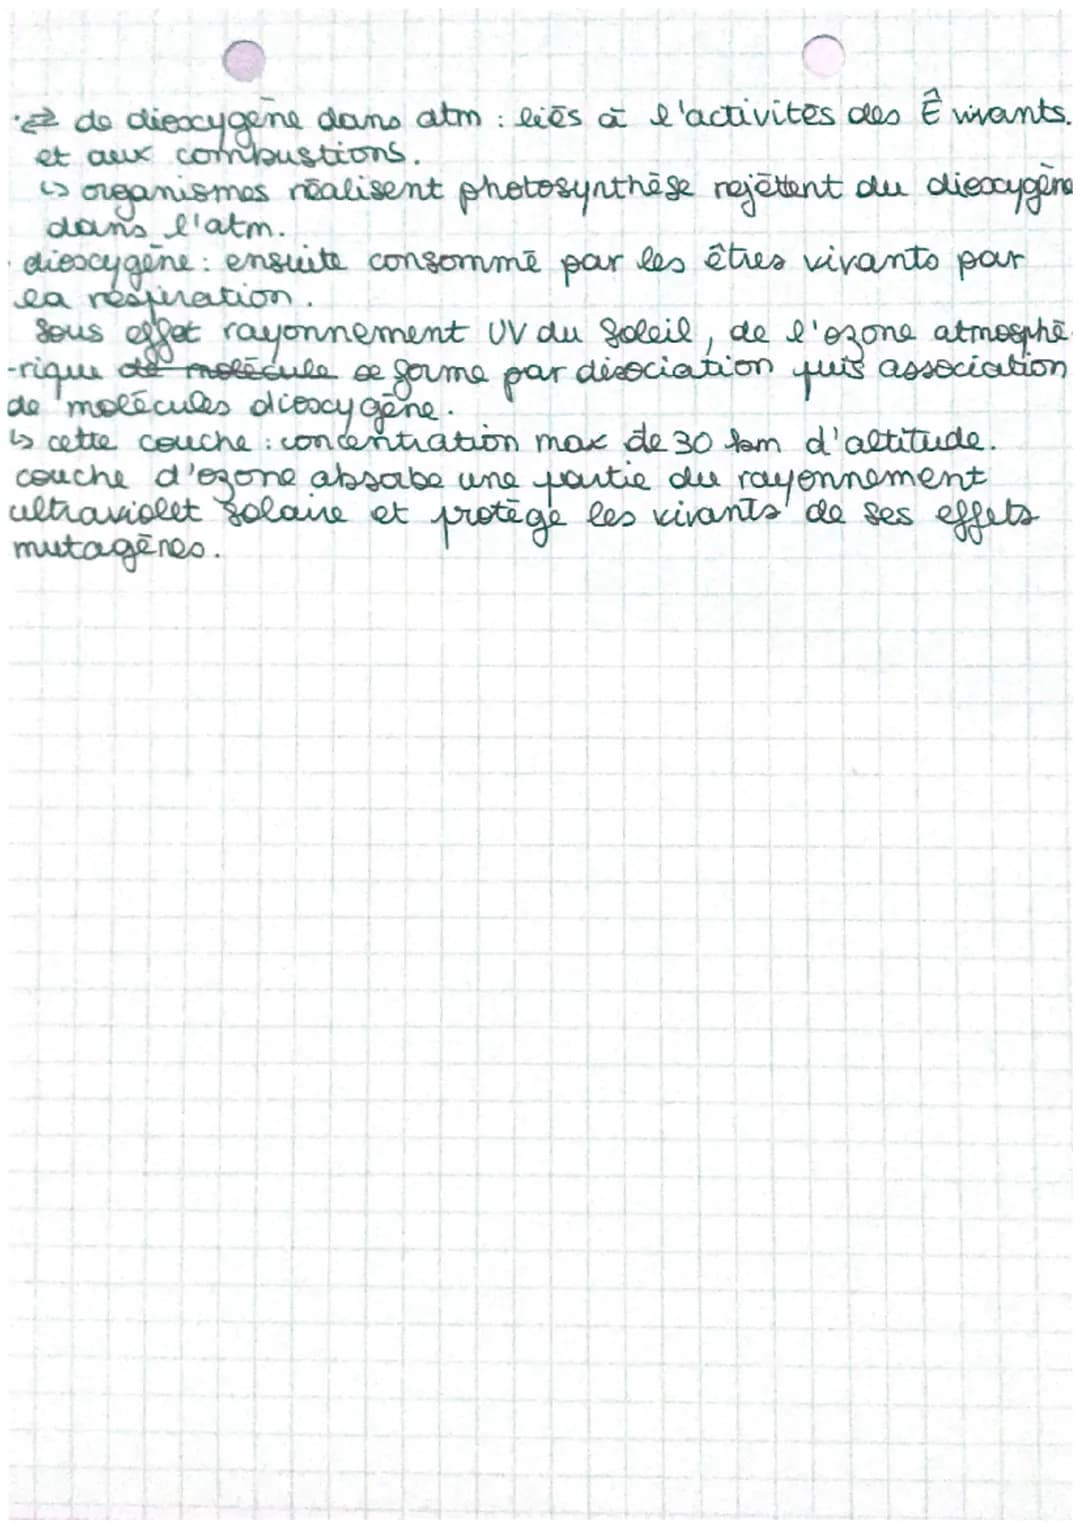 ·⇄ de dioxygène dans atm : liés à l'activités des Ê vivants.
et aux combustions.
↳ organismes réalisent photosynthèse rejettent du dioxygène
dans l'atm.
· dioxygène : ensuite consommé par les êtres vivants par
la respiration.
Sous effet rayonnement UV du Soleil, de l'ozone atmosphé-
-rique de molécule se forme par dissociation puis association
de molécules dioxygène.
↳ cette couche : concentration max de 30 km d'altitude.
couche d'ozone absorbe une partie du rayonnement
ultraviolet solaire et protège les vivants de ses effets
mutagènes.